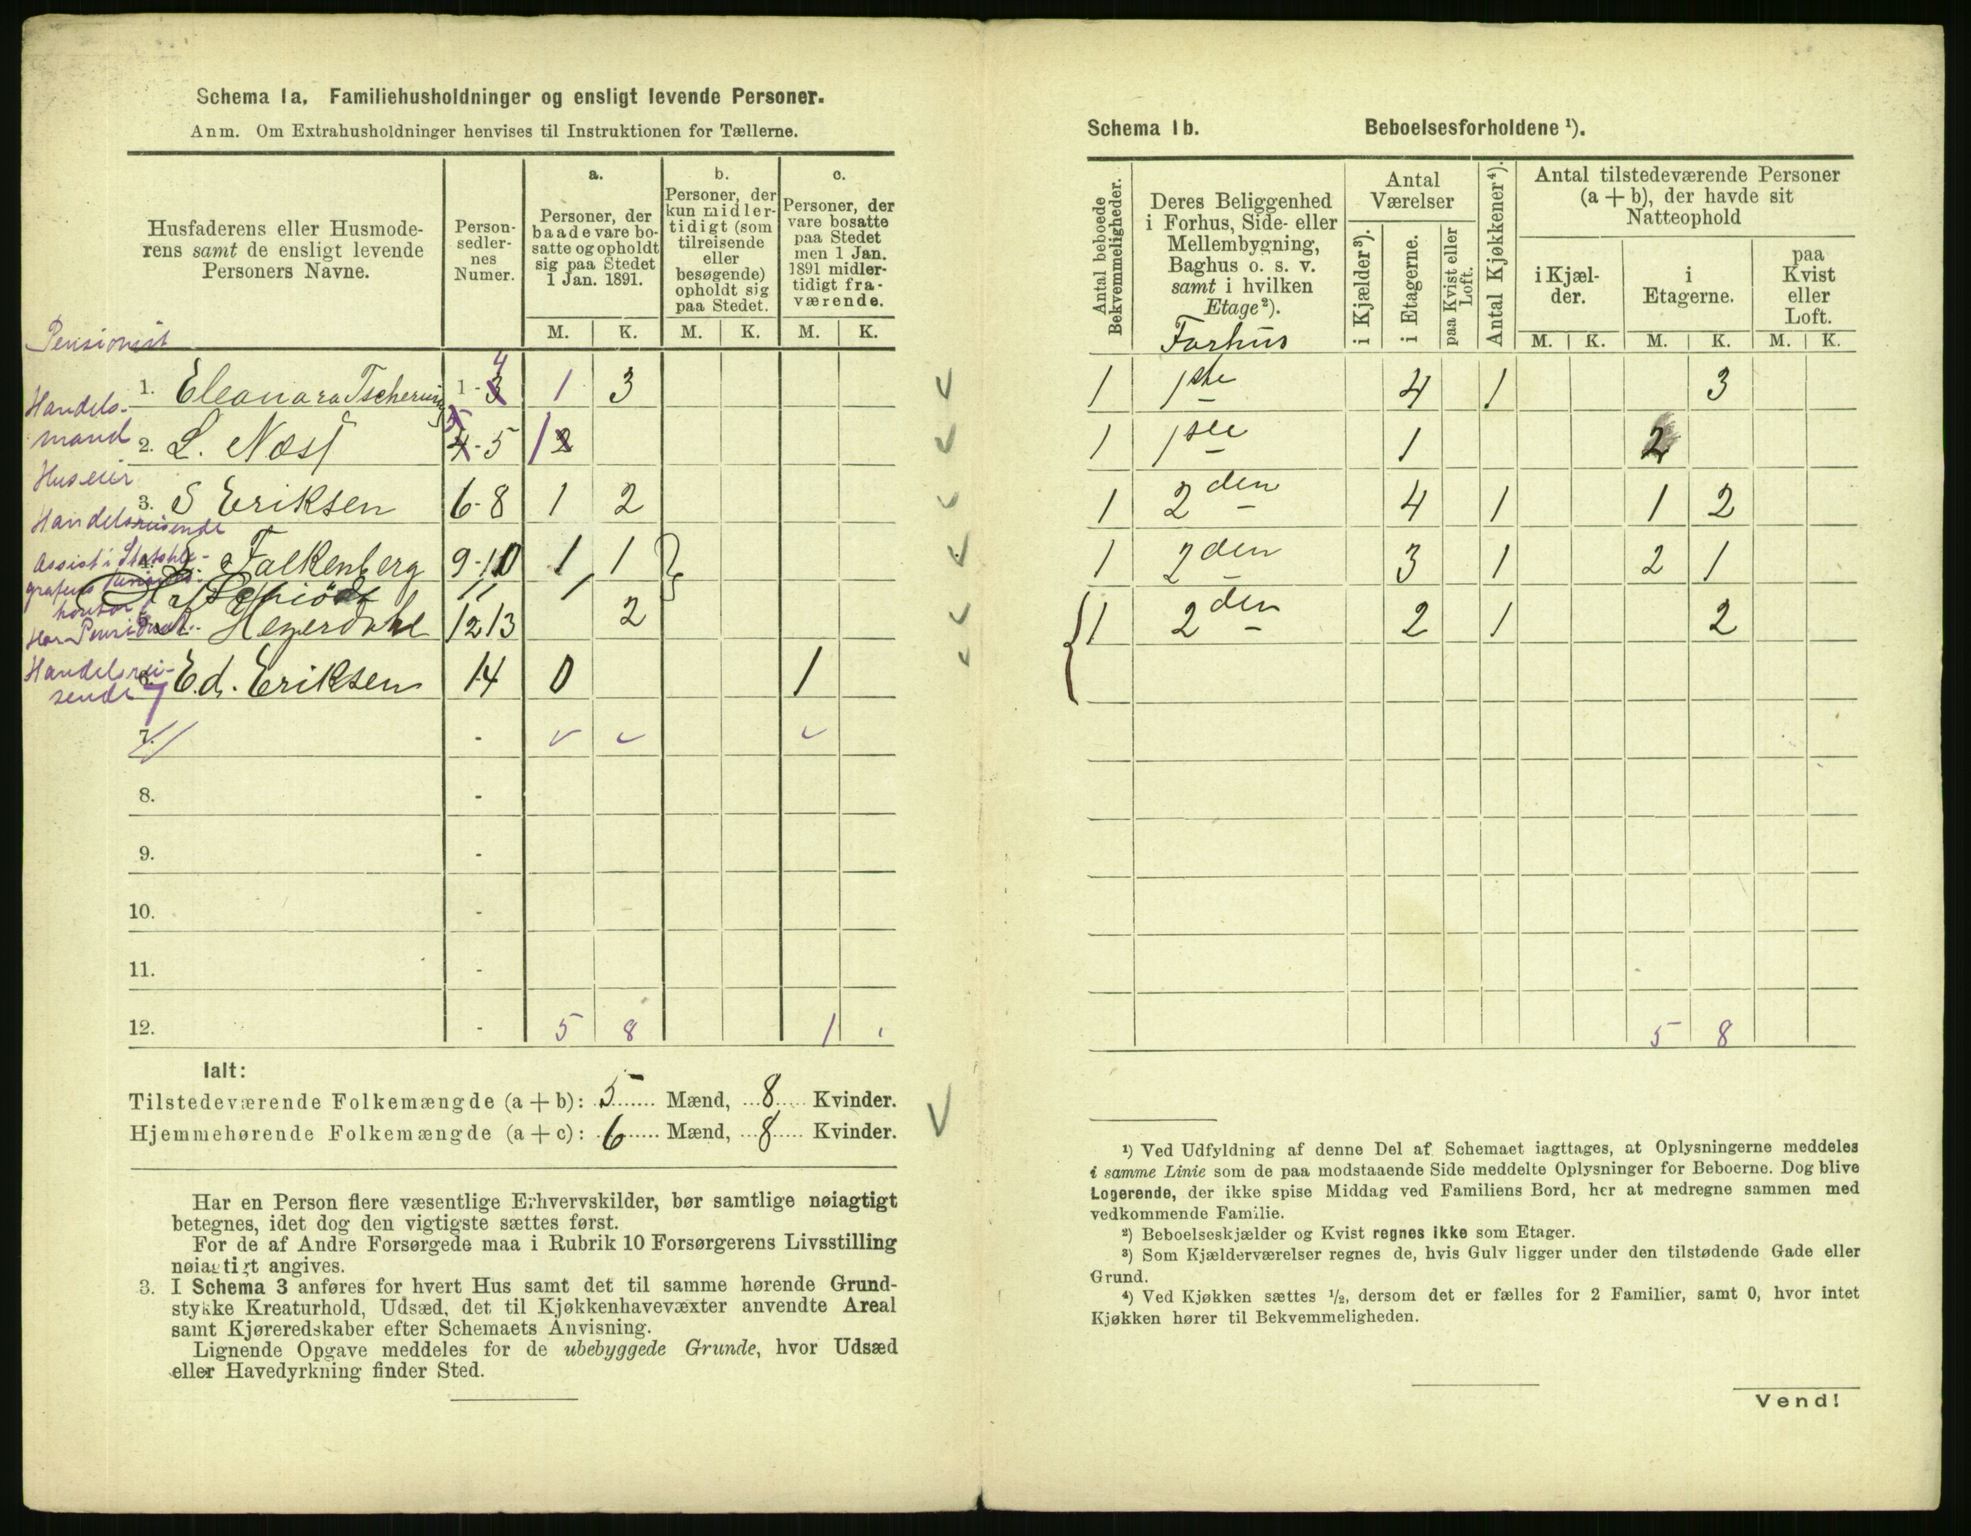 Schema Ia. Familiehusholdninger og ensligt levende Personer.
Anm. Om Extrahusholdninger henvises til Instruktionen for Tællerne.
Husfaderens eller Husmode-
rens samt de ensligt levende
Personers Navne.
Person-
sedler-
nes
Numer.
a.
Personer, der
baade vare bo-
satte og opholdt
sig paa Stedet
1 Jan. 1891.
b.
Personer, der
kun midler-
tidigt (som
tilreisende
eller
besøgende)
opholdt sig
paa Stedet.
c.
Personer, der
vare bosatte
paa Stedet
men 1 Jan.
1891 midler-
tidigt fra-
værende.
M. K. M. K. M. K.
Pensionist
1. Eleonara Tscherning 1-3 4 1 3
Handels-
mand
2. L. Næss 4-5 5 1 2
Huseier
3. S Eriksen 6-8 1 2
Handelsreisende
4. Falkenberg 9-10 1 1
Assist i
11 1
kontor
5. Heyerdahl 12 13 2
Har Pension
Handelsrei-
sende
6. Ed. Eriksen 14 0 1
7
7. -
8. -
9. -
10. -
11. -
12. - 5 8 1
Ialt:
Tilstedeværende Folkemængde (a + b): 5 Mænd, 8 Kvinder.
Hjemmehørende Folkemængde (a + c): 6 Mænd, 8 Kvinder.
Har en Person flere væsentlige Erhvervskilder, bør samtlige nøiagtigt
betegnes, idet dog den vigtigste sættes først.
For de af Andre Forsørgede maa i Rubrik 10 Forsørgerens Livsstilling
nøiagtigt angives.
3. I Schema 3 anføres for hvert Hus samt det til samme hørende Grund-
stykke Kreaturhold, Udsæd, det til Kjøkkenhavevæxter anvendte Areal
samt Kjøreredskaber efter Schemaets Anvisning.
Lignende Opgave meddeles for de ubebyggede Grunde, hvor Udsæd
eller Havedyrkning finder Sted.
Schema Ib. Beboelsesforholdene ¹).
Antal beboede
Bekvemmeligheder.
Deres Beliggenhed
i Forhus, Side- eller
Mellembygning,
Baghus o. s. v.
samt i hvilken
Etage²).
Forhus
Antal
Værelser
i Kjælder³).
i Etagerne.
paa Kvist eller
Loft.
Antal Kjøkkener⁴).
Antal tilstedeværende Personer
(a + b), der havde sit
Natteophold
i Kjæl-
der.
i
Etagerne.
paa
Kvist
eller
Loft.
M. K. M. K. M. K.
1 1ste 4 1 3
1 1ste 1 2
1 2den 4 1 1 2
1 2den 3 1 2 1
1 2den 2 1 2
5 8
¹) Ved Udfyldning af denne Del af Schemaet iagttages, at Oplysningerne meddeles
i samme Linie som de paa modstaaende Side meddelte Oplysninger for Beboerne. Dog blive
Logerende, der ikke spise Middag ved Familiens Bord, her at medregne sammen med
vedkommende Familie.
²) Beboelseskjælder og Kvist regnes ikke som Etager.
³) Som Kjælderværelser regnes de, hvis Gulv ligger under den tilstødende Gade eller
Grund.
⁴) Ved Kjøkken sættes ½, dersom det er fælles for 2 Familier, samt 0, hvor intet
Kjøkken hører til Bekvemmeligheden.
Vend!